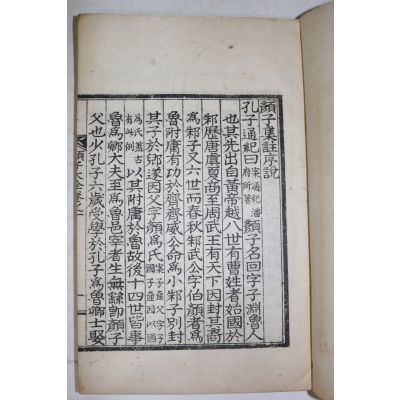 顔子集註序說
孔子通紀曰案通紀潘府所著顔子名回字子淵魯人
也其先出自黃帝越八世有曹姓者始國於
邾歷唐虞夏商至周武王有天下因封其裔
爲邾子又六世而春秋邾武公字伯顔者爲
魯附庸有功於齊齊威公命爲小邾子別封
其子於郳遂因父字顔爲氏案子孫以父字子國子產因以國
爲氏蓋古有此例以其附庸於魯故後十四世皆事
魯爲卿大夫至爲魯邑宰者生無繇卽顔子
父也少孔子六歲受學於孔子爲魯卿士娶
顔子大全卷之一